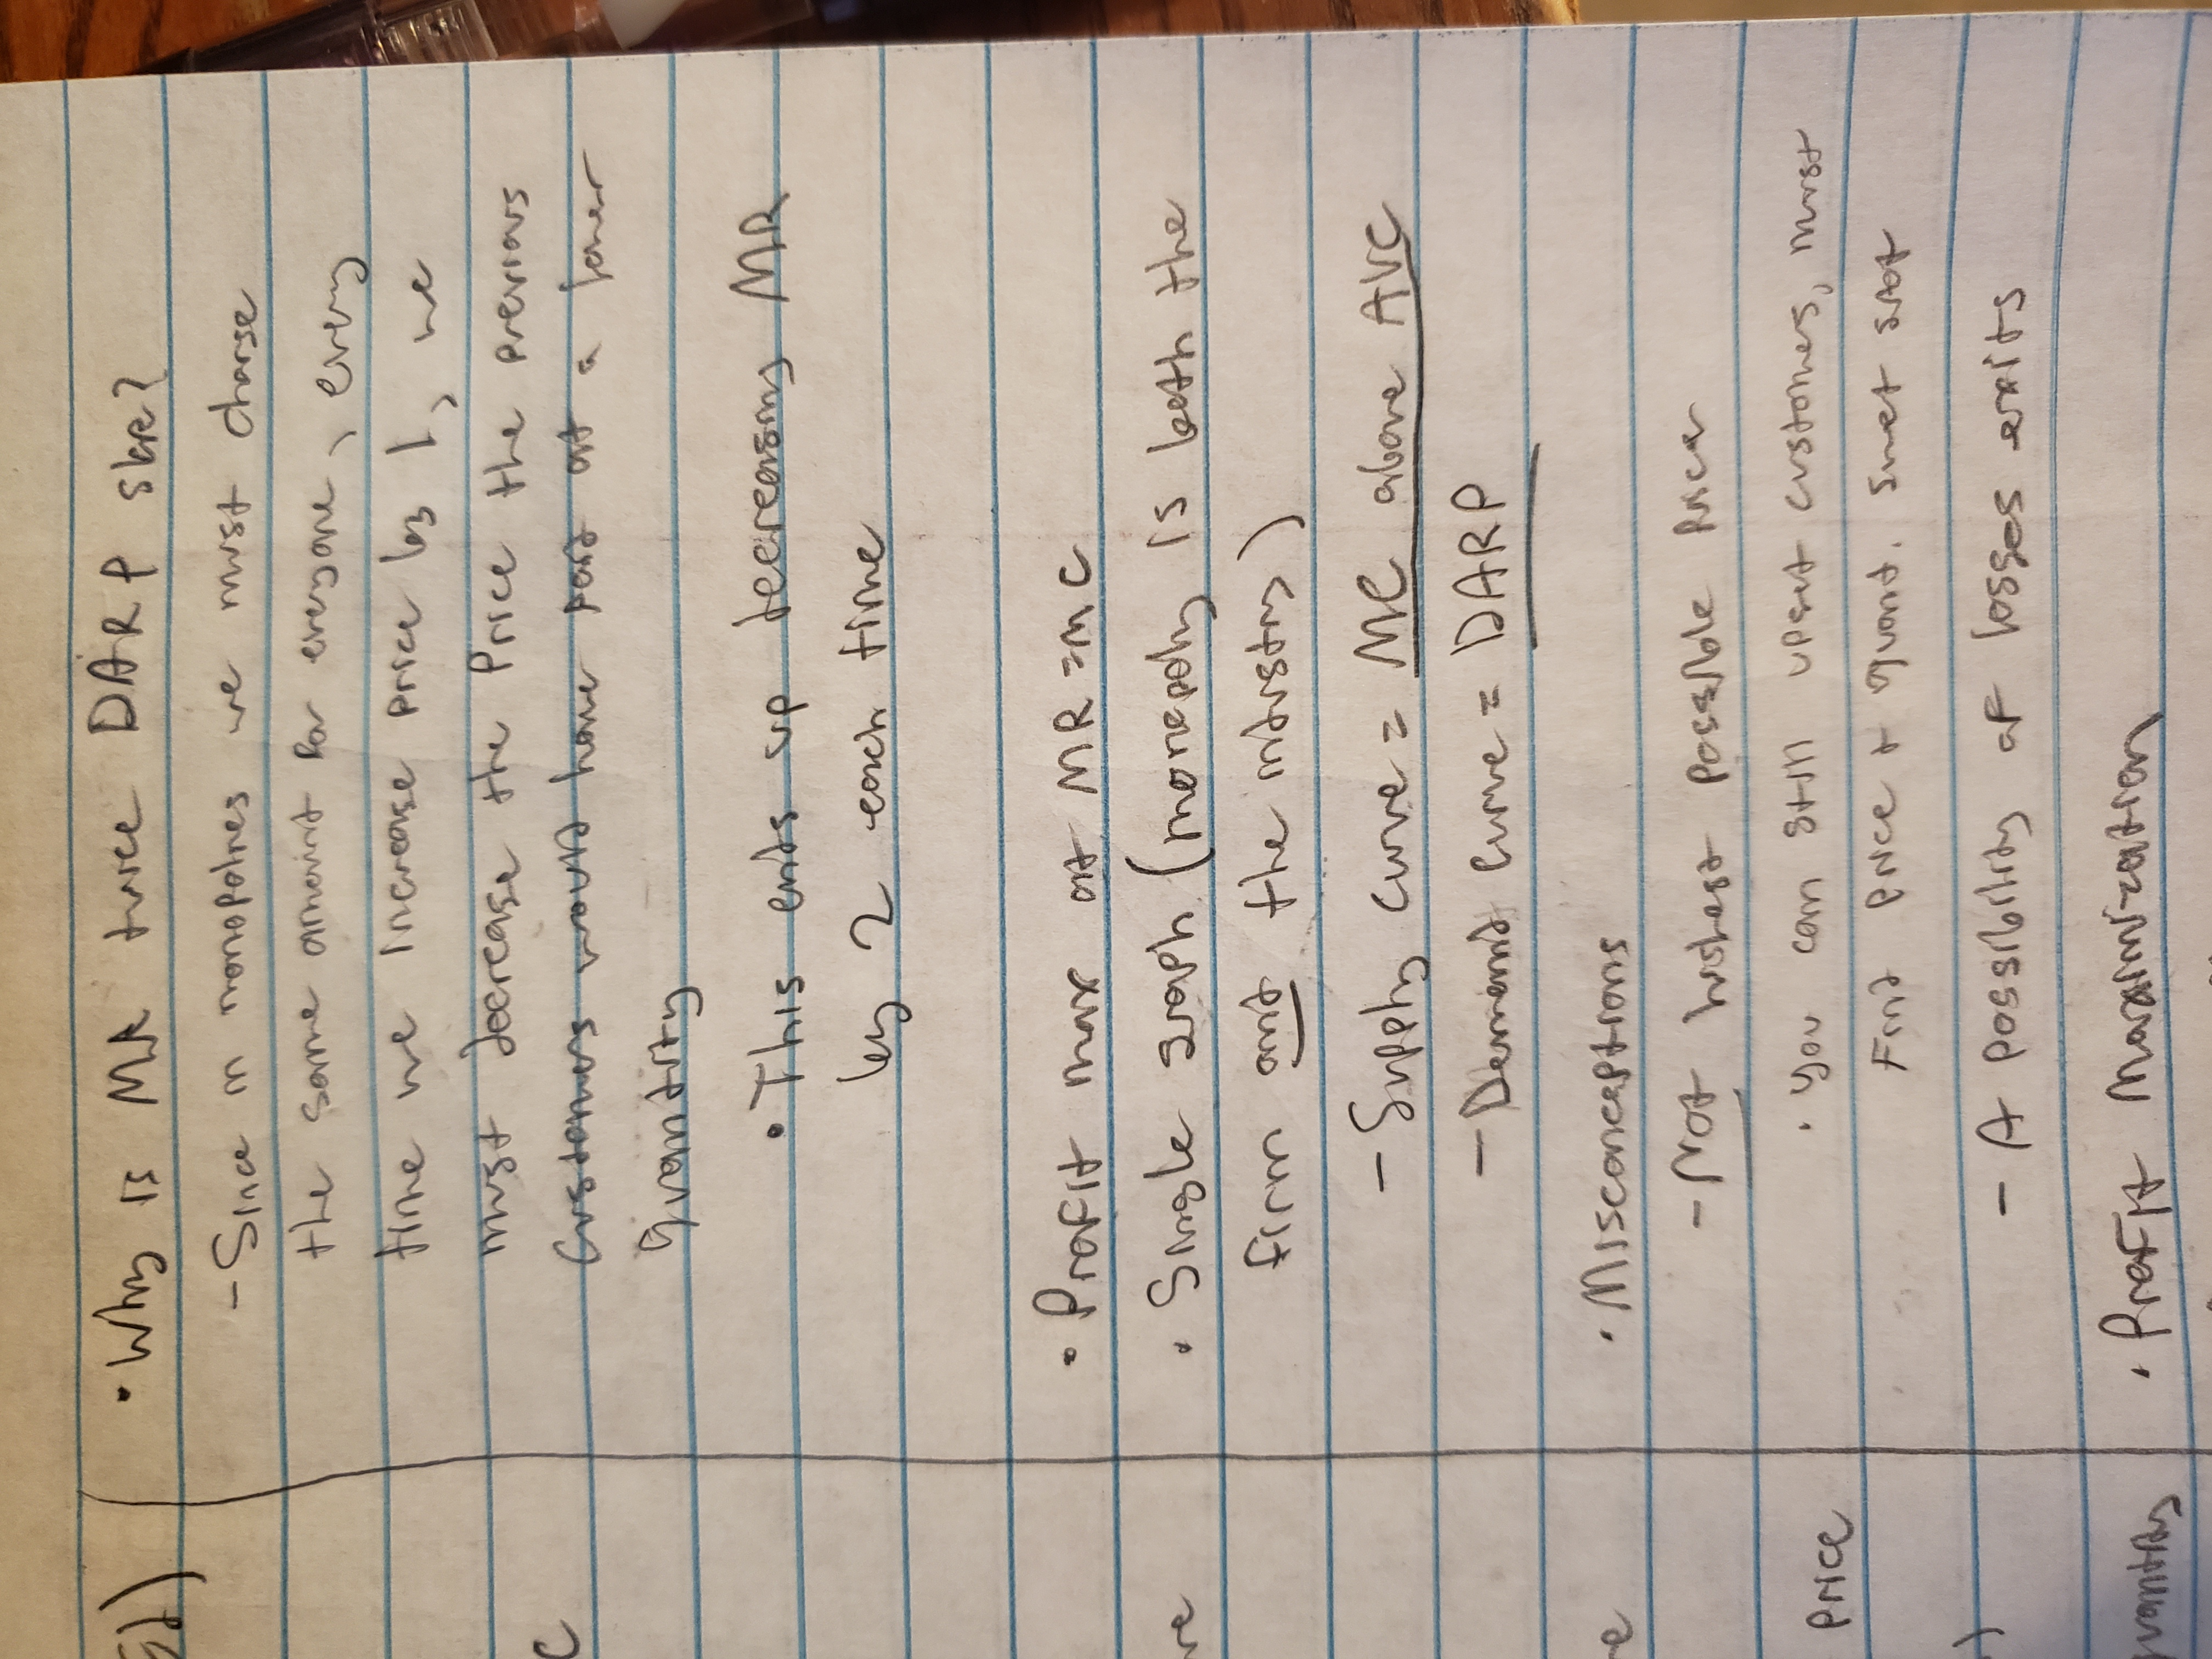 • Why is MR twice DARP slope?
- Since in monopolies we must charge
the same amount for everyone, every
time we increase price by 1, we
must decrease the price the previous
customers would have paid at a lower
quantity
• This ends up decreasing MR
by 2 each time
• Profit max at MR = MC
• Single graph (monopoly is both the
firm and the industry)
- Supply curve = MC above AVC
- Demand curve = DARP
• Misconceptions
- Not highest possible price
• you can still upset customers, must
find price + quant. sweet spot
- A possibility of losses exits
• Profit Maximization
C
price
quantity